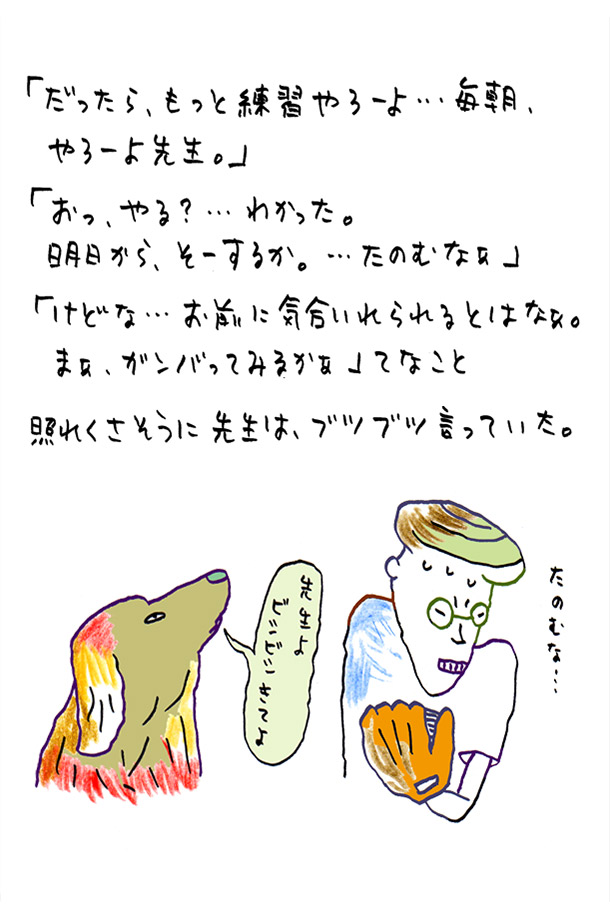 「だったら、もっと練習やろーよ…毎朝、
やろーよ先生。」
「おっ、やる?…わかった。
明日から、そーするか。…たのむなぁ」
「けどな…お前に気合いれられるとはなぁ。
まぁ、ガンバってみるかぁ」てなこと
照れくさそうに先生は、ブツブツ言っていた。
先生よ
ビシビシきてよ
たのむな…